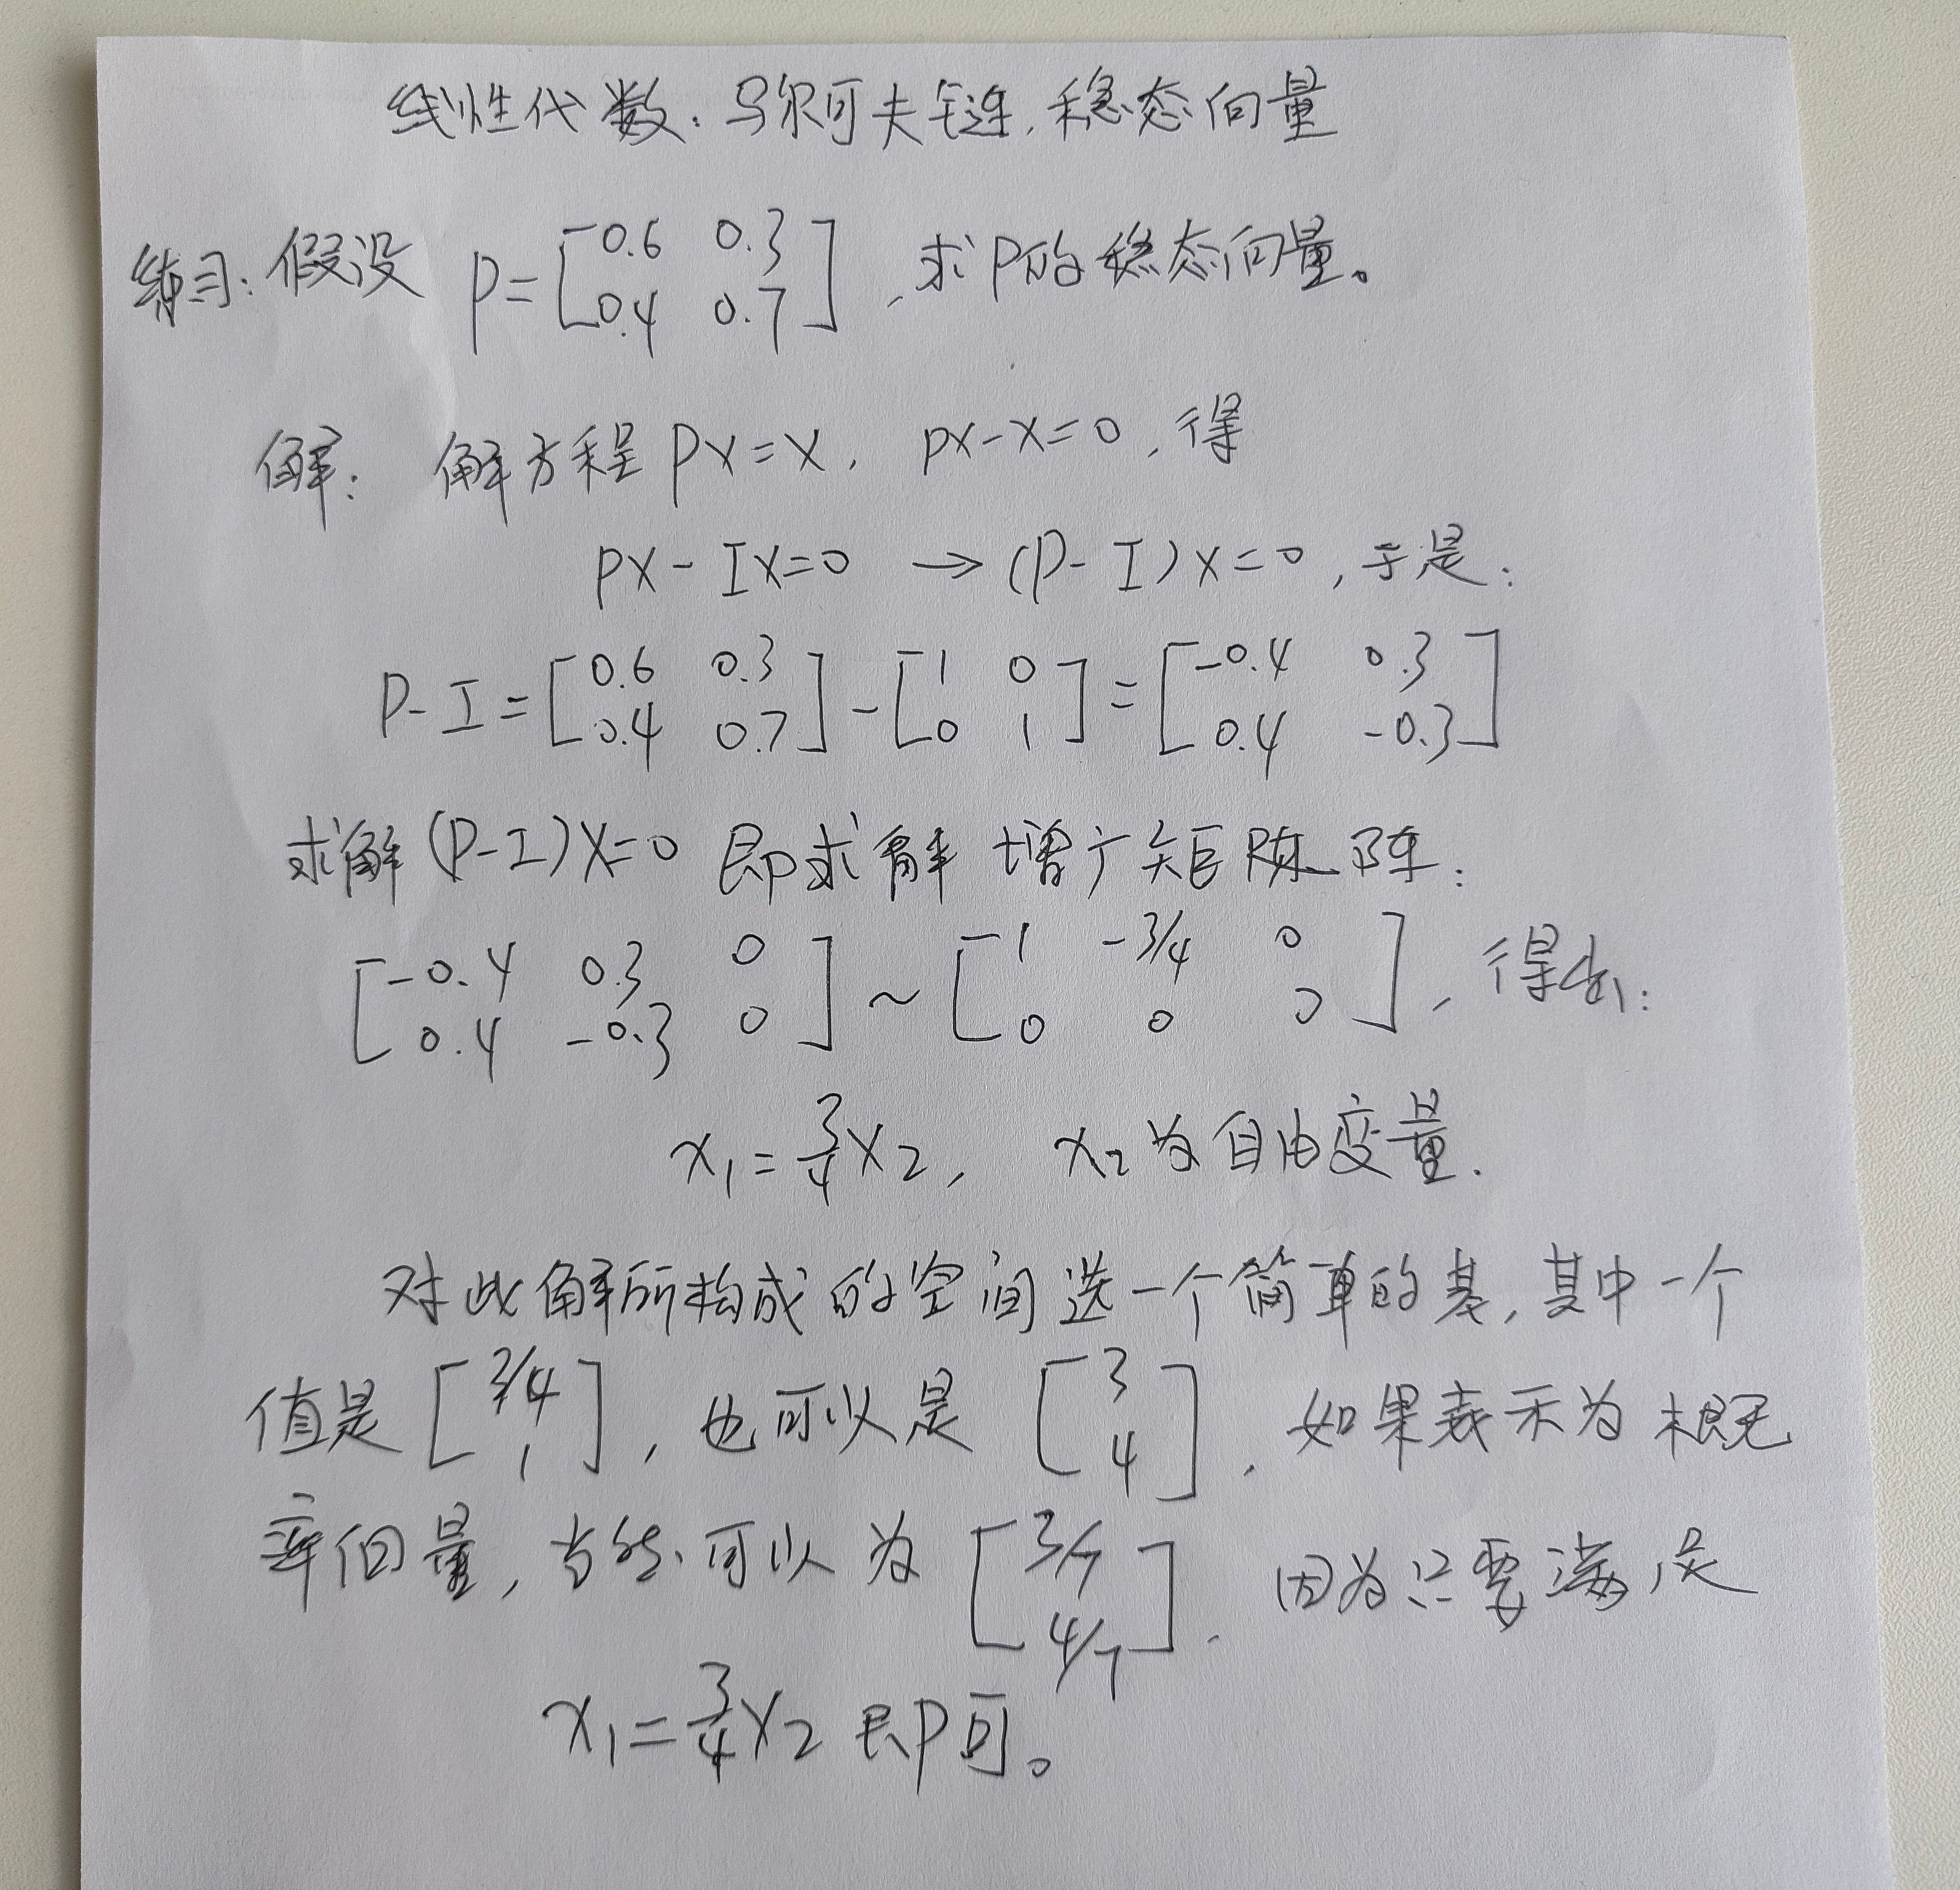 线性代数：马尔可夫链，稳态向量
练习：假设 P=[0.6 0.3; 0.4 0.7]，求P的稳态向量。
解： 解方程 PX=X， PX-X=0，得
PX-IX=0 → (P-I)X=0，于是：
P-I=[0.6 0.3; 0.4 0.7]-[1 0; 0 1]=[-0.4 0.3; 0.4 -0.3]
求解(P-I)X=0 即求解 增广矩陈阵：
[-0.4 0.3 0; 0.4 -0.3 0] ~ [1 -3/4 0; 0 0 0]，得出：
x₁=3/4 x₂， x₂为自由变量.
对此解所构成的空间选一个简单的基，其中一个
值是[3/4; 1]，也可以是[3; 4]，如果表示为概
率向量，当然可以为[3/7; 4/7]. 因为只要满足
x₁=3/4 x₂ 即可。